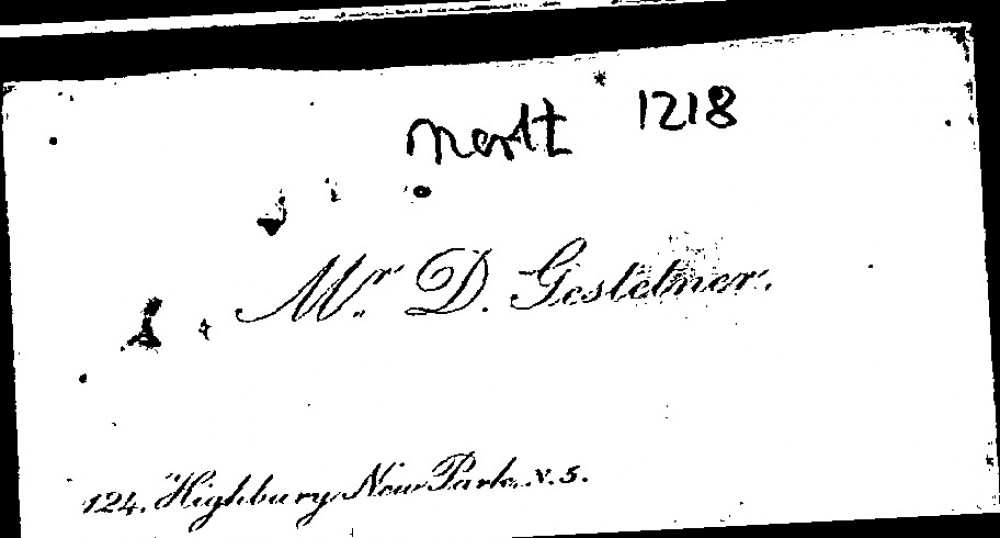 North 1218
Mr. D. Gestetner.
124. Highbury New Park. N. 5.